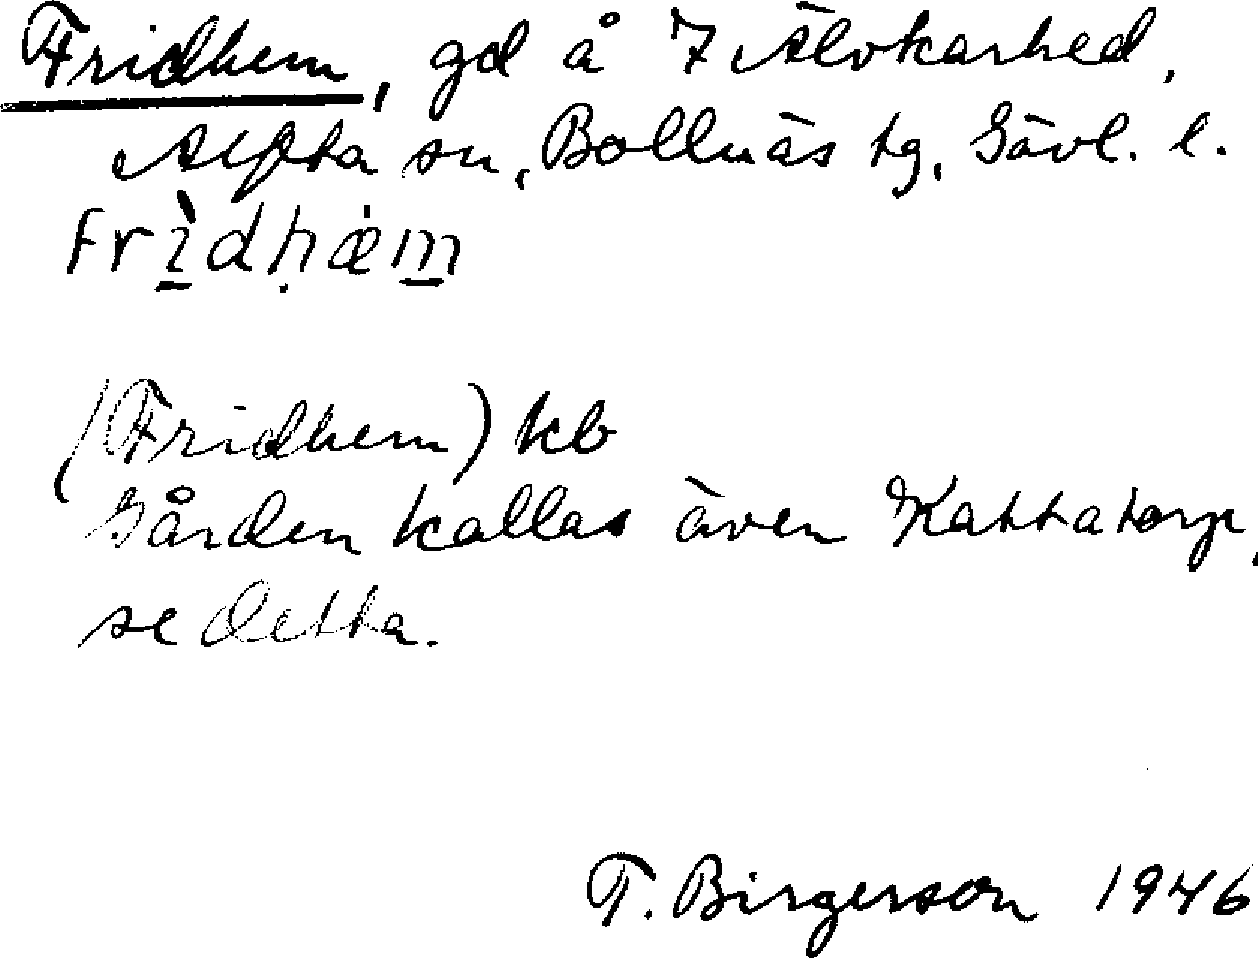 Fridhem, gd å 7 Älvkarhed,
Alfta sn, Bollnäs tg, Gävl. l.
Frìdhæm
(Fridhem) kb
Gården kallas även Kattatorp,
se detta.
T. Birgerson 1946